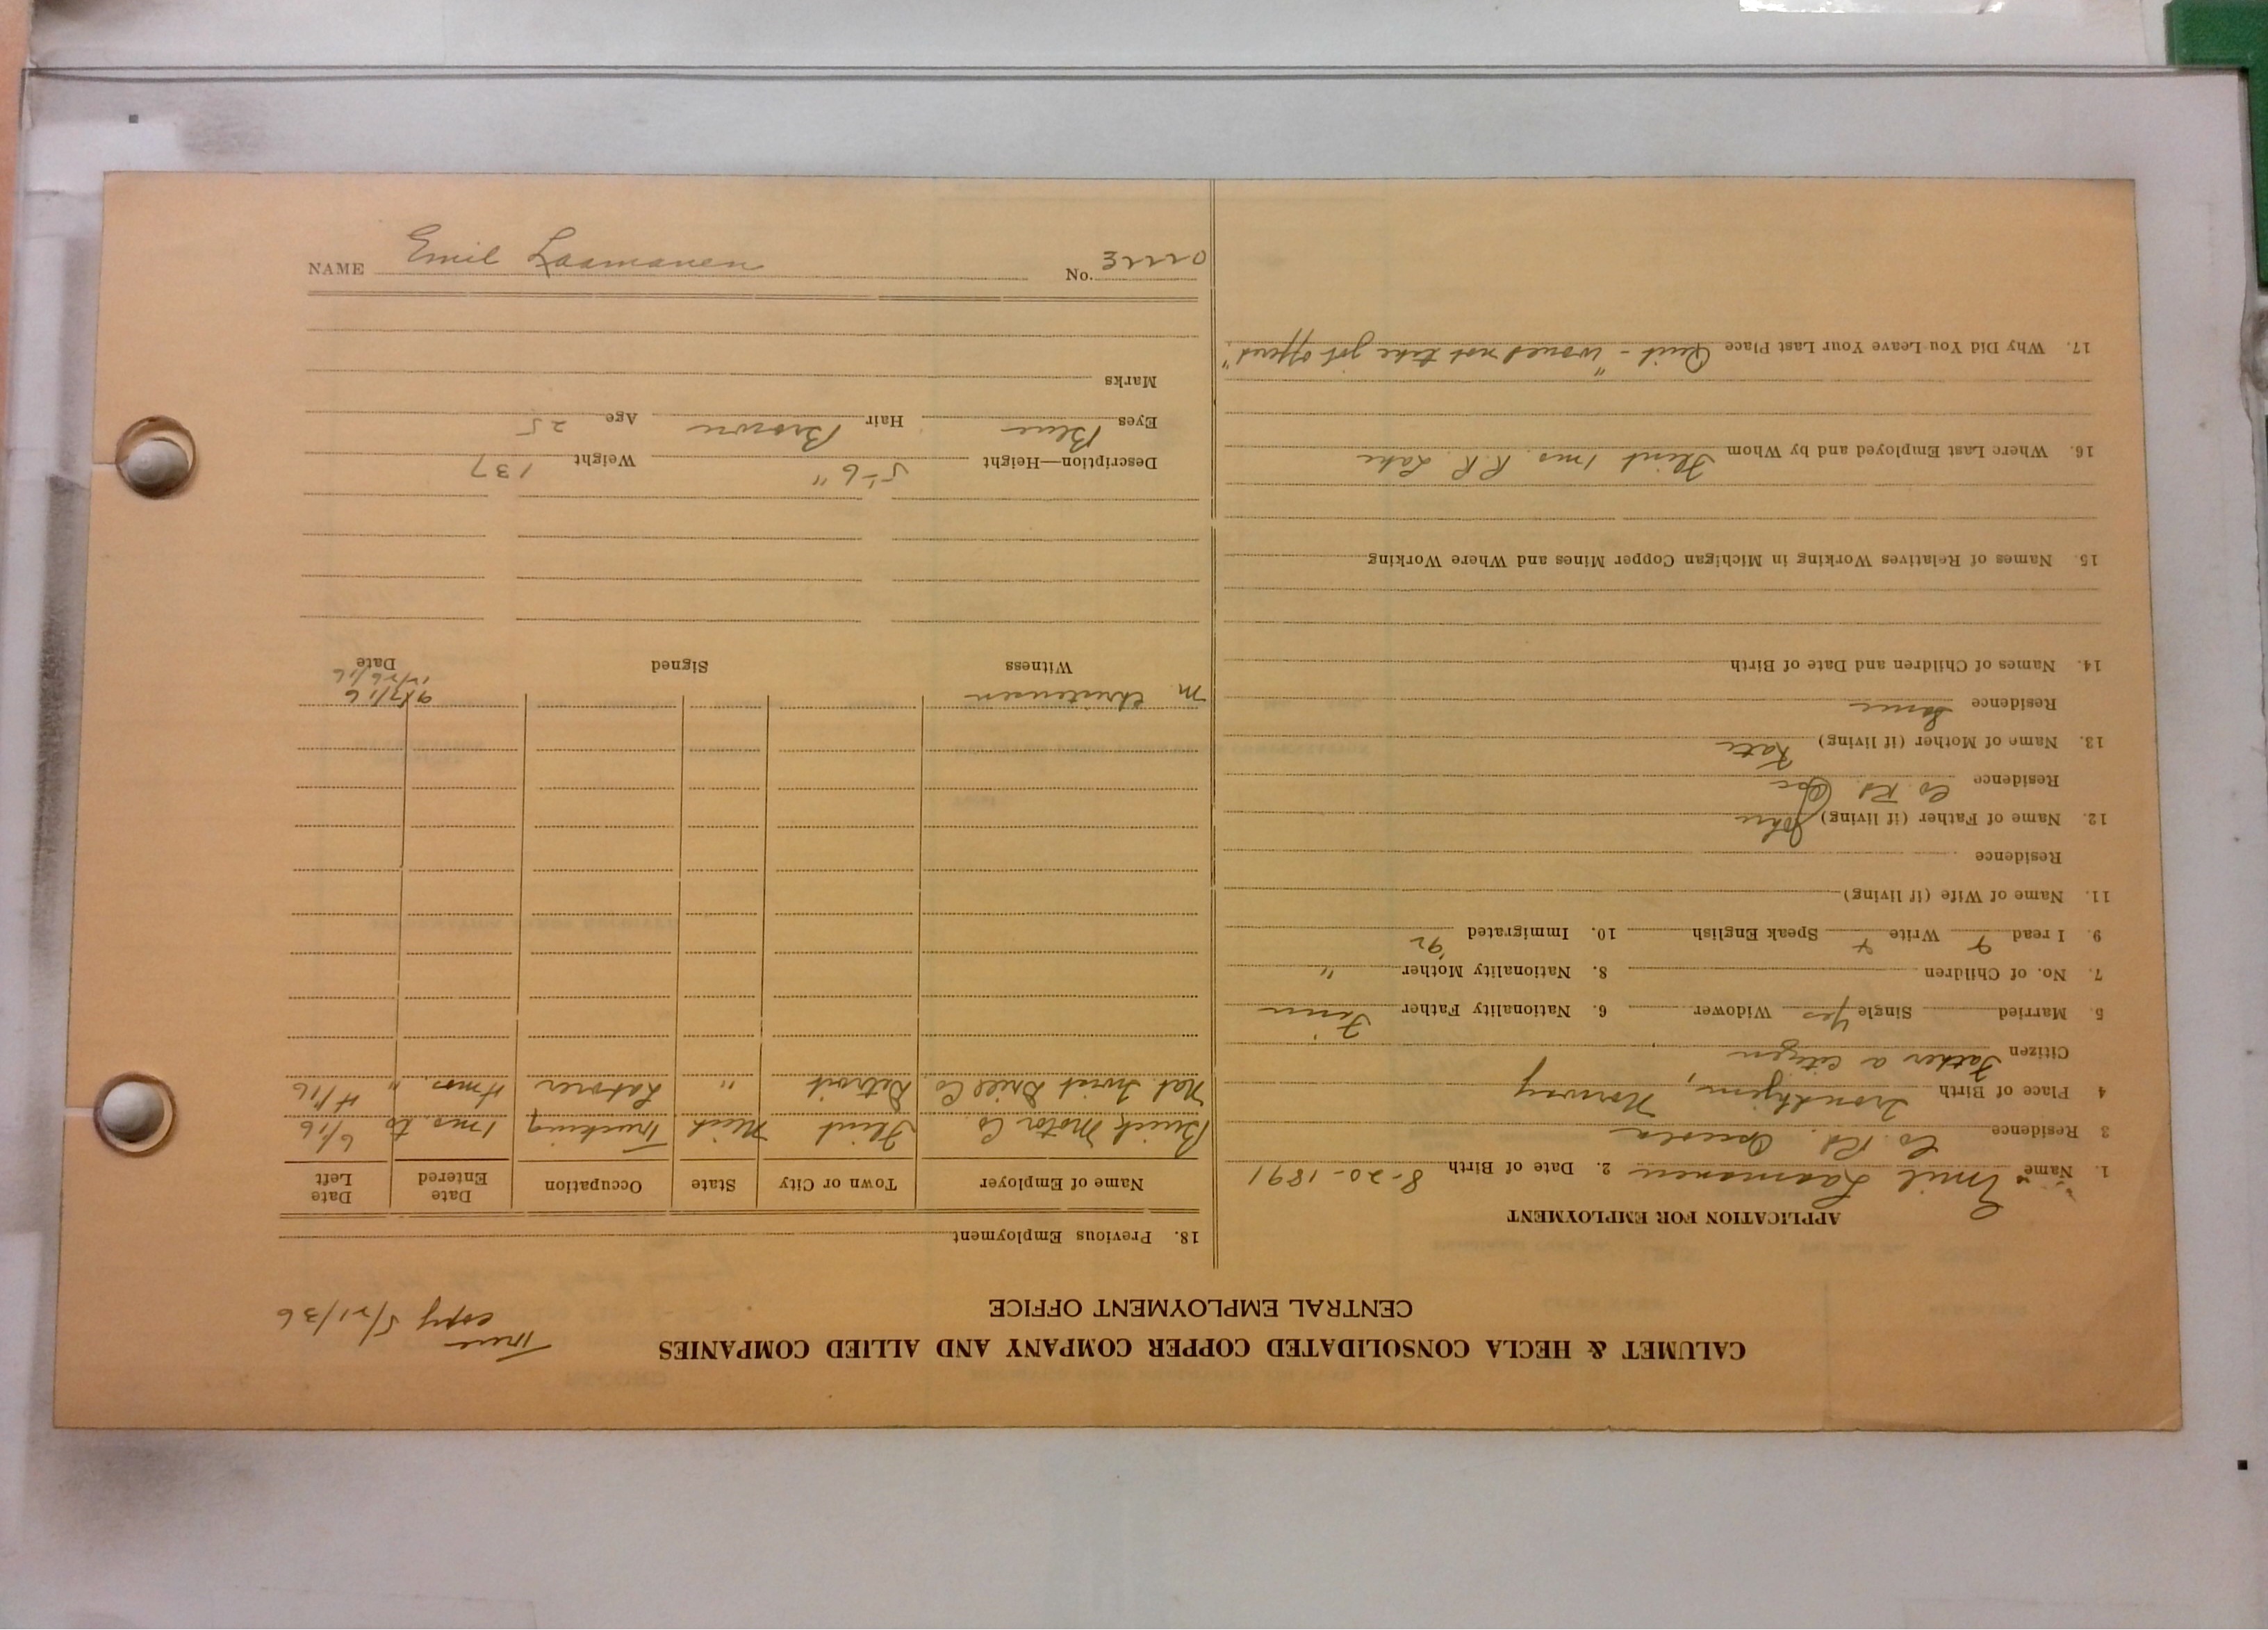 CALUMET & HECLA CONSOLIDATED COPPER COMPANY AND ALLIED COMPANIES
CENTRAL EMPLOYMENT OFFICE
True copy 5/21/36
APPLICATION FOR EMPLOYMENT
1. Name Emil Laamanen 2. Date of Birth 8-20-1891
3 Residence Co. Rd. Osceola
4 Place of Birth Trondhjem, Norway
Citizen Father a citizen
5. Married Single Yes Widower 6. Nationality Father Finn
7. No. of Children 8. Nationality Mother "
9. I read Write Speak English 10. Immigrated 92
11. Name of Wife (if living)
Residence
12. Name of Father (if living) John
Residence Co. Rd. Osc
13. Name of Mother (if living) Kate
Residence Same
14. Names of Children and Date of Birth
15. Names of Relatives Working in Michigan Copper Mines and Where Working
16. Where Last Employed and by Whom Flint 1 mo. R.R. Lake
17. Why Did You Leave Your Last Place Quit - "would not take job offered"
18. Previous Employment
Name of Employer Town or City State Occupation Date Entered Date Left
Buick Motor Co. Flint Mich Trucking 1 mo. to 6/16
Nat Twist Drill Co. Detroit " Laborer 4 mos " 4/16
M. Christensen 9/7/16
12/26/16
Witness Signed Date
Description—Height 5-6" Weight 137
Eyes Blue Hair Brown Age 25
Marks
NAME Emil Laamanen No.